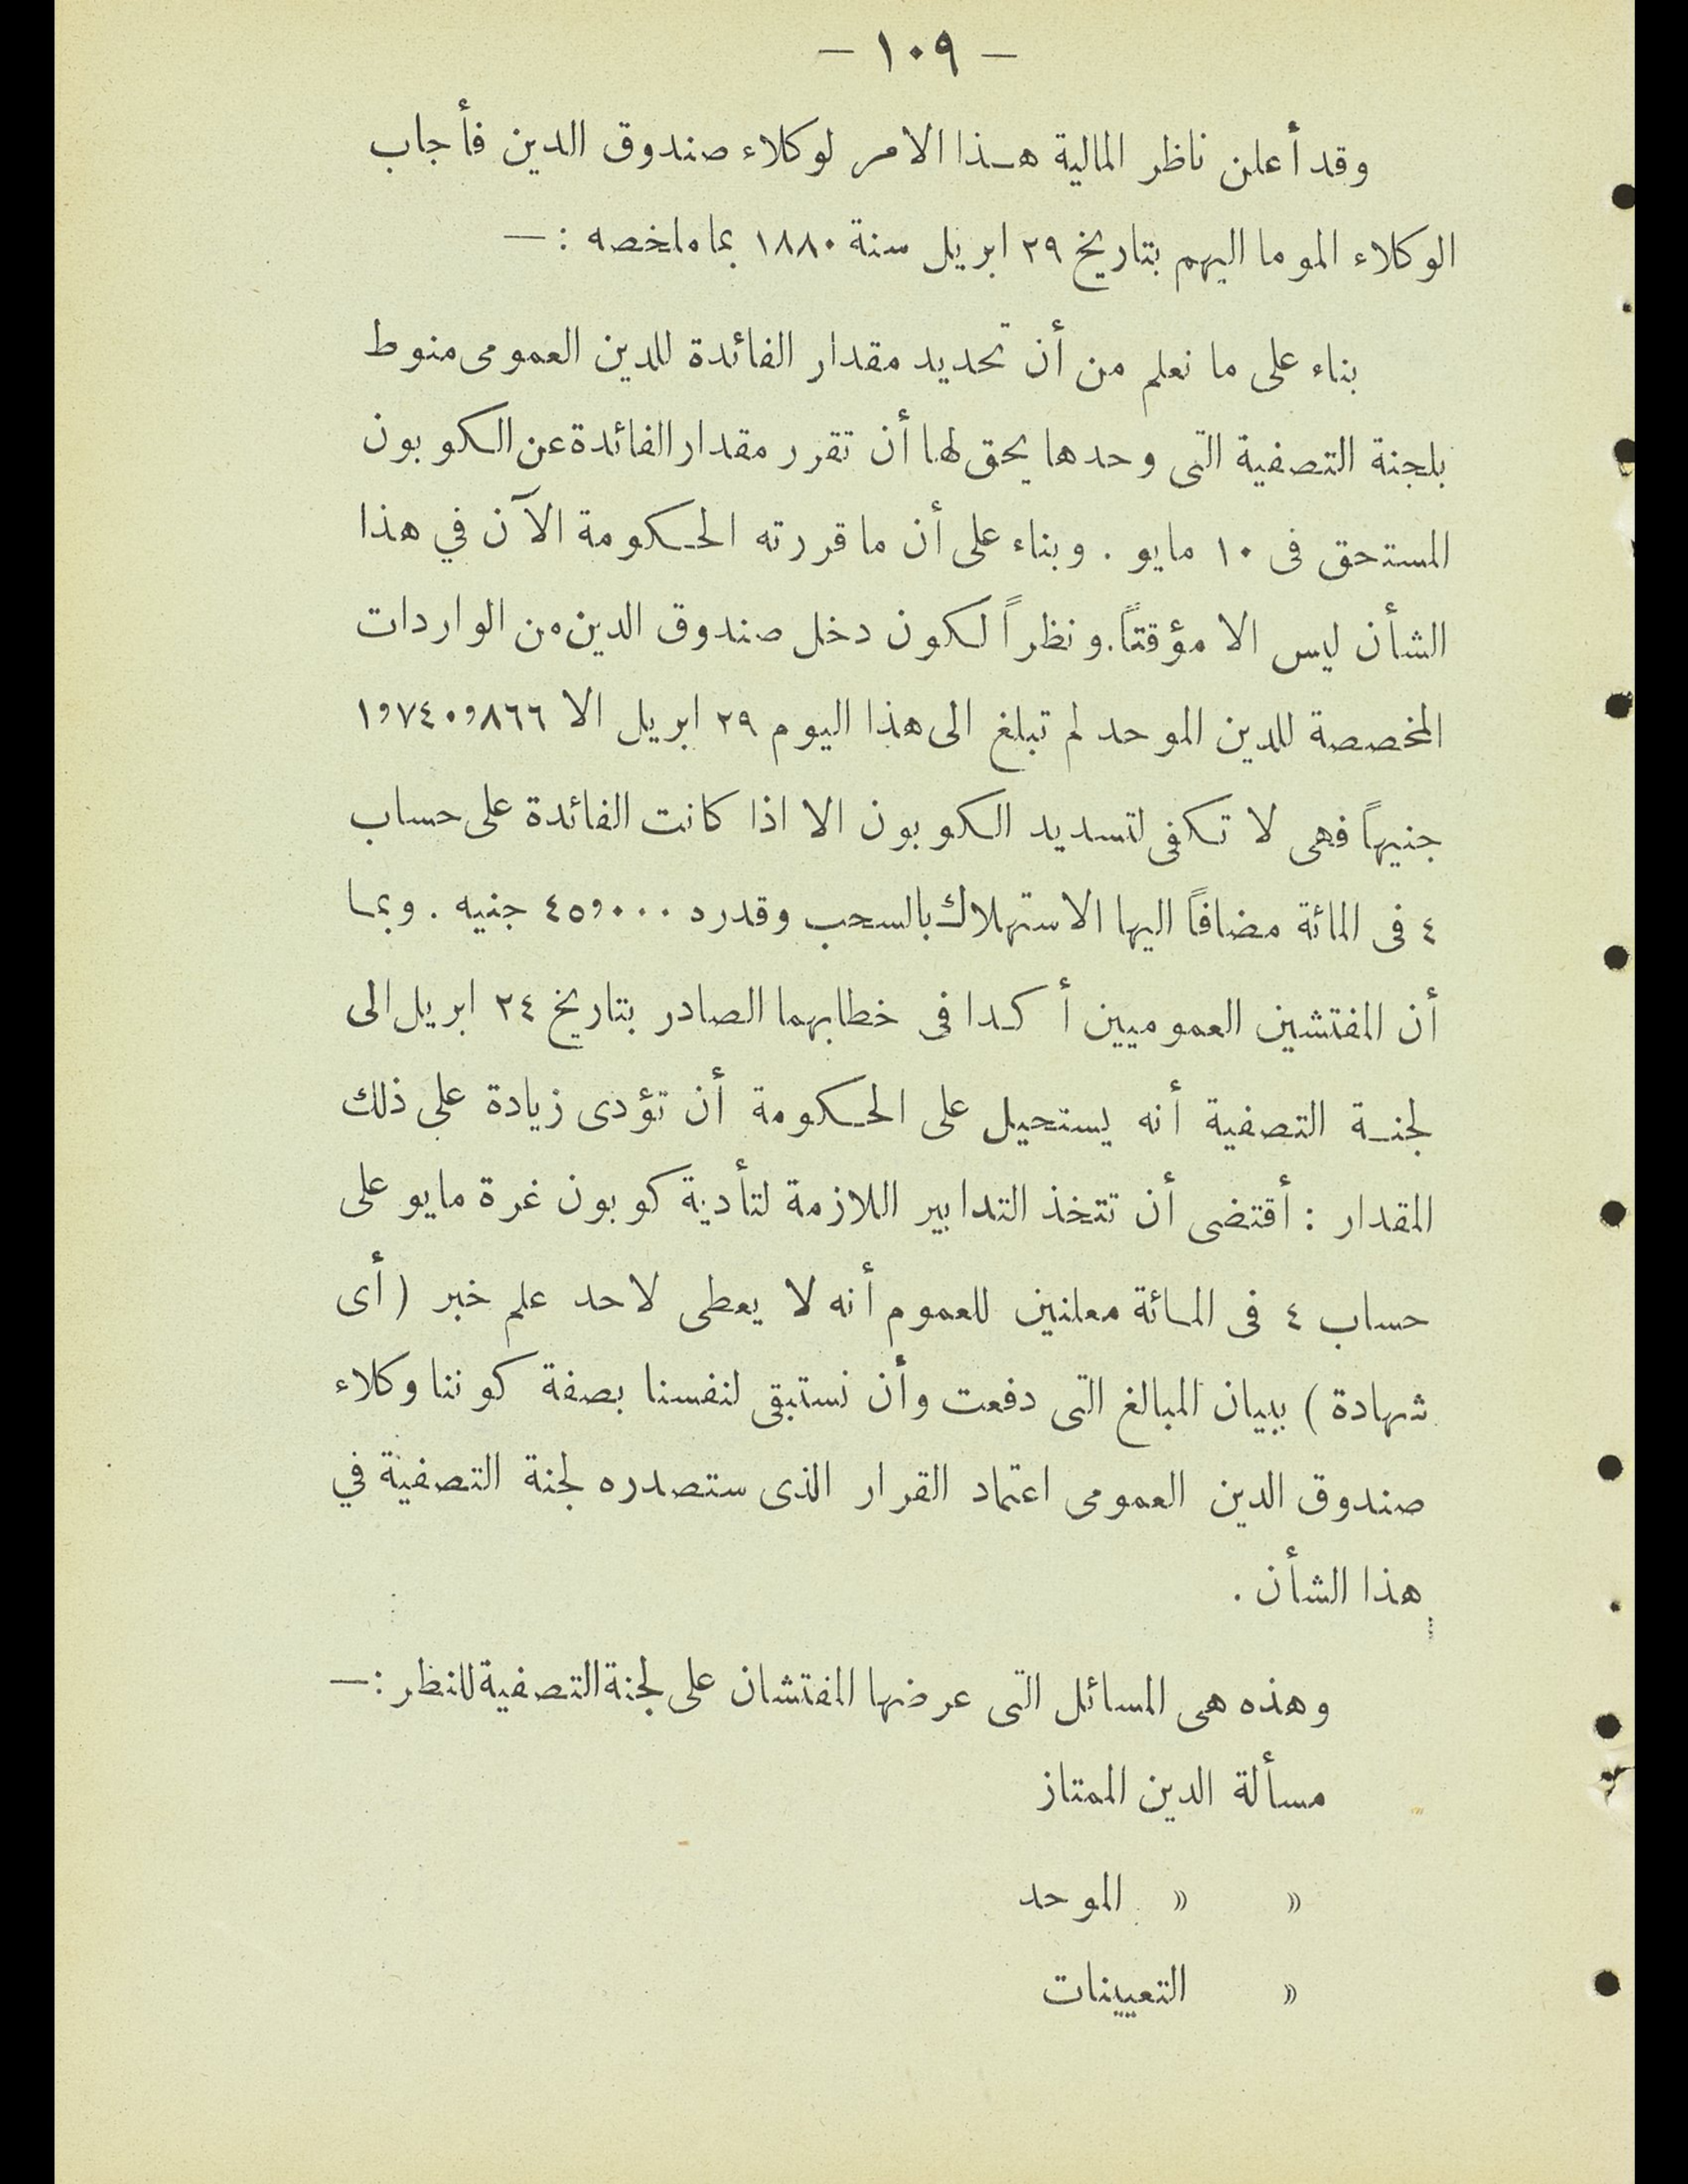 — ١٠٩ —
وقد أعلن ناظر المالية هـذا الامر لوكلاء صندوق الدين فأجاب
الوكلاء الموما اليهم بتاريخ ٢٩ ابريل سنة ١٨٨٠ بما ملخصه : —
بناء على ما نعلم من أن تحديد مقدار الفائدة للدين العمومى منوط
بلجنة التصفية التى وحدها يحق لها أن تقرر مقدار الفائدة عن الكوبون
المستحق فى ١٠ مايو . وبناء على أن ما قررته الحكومة الآن في هذا
الشأن ليس الا مؤقتاً. ونظراً لكون دخل صندوق الدين من الواردات
المخصصة للدين الموحد لم تبلغ الى هذا اليوم ٢٩ ابريل الا ١,٧٤٠,٨٦٦
جنيهاً فهى لا تكفى لتسديد الكوبون الا اذا كانت الفائدة على حساب
٤ فى المائة مضافاً اليها الاستهلاك بالسحب وقدره ٤٥,٠٠٠ جنيه . وبما
أن المفتشين العموميين أكدا فى خطابهما الصادر بتاريخ ٢٤ ابريل الى
لجنـة التصفية أنه يستحيل على الحكومة أن تؤدى زيادة على ذلك
المقدار : أقتضى أن تتخذ التدابير اللازمة لتأدية كوبون غرة مايو على
حساب ٤ فى المائة معلنين للعموم أنه لا يعطى لاحد علم خبر ( أى
شهادة ) ببيان المبالغ التى دفعت وأن نستبقى لنفسنا بصفة كوننا وكلاء
صندوق الدين العمومى اعتماد القرار الذى ستصدره لجنة التصفية في
هذا الشأن .
وهذه هى المسائل التى عرضها المفتشان على لجنة التصفية للنظر : —
مسألة الدين الممتاز
» » الموحد
» التعيينات